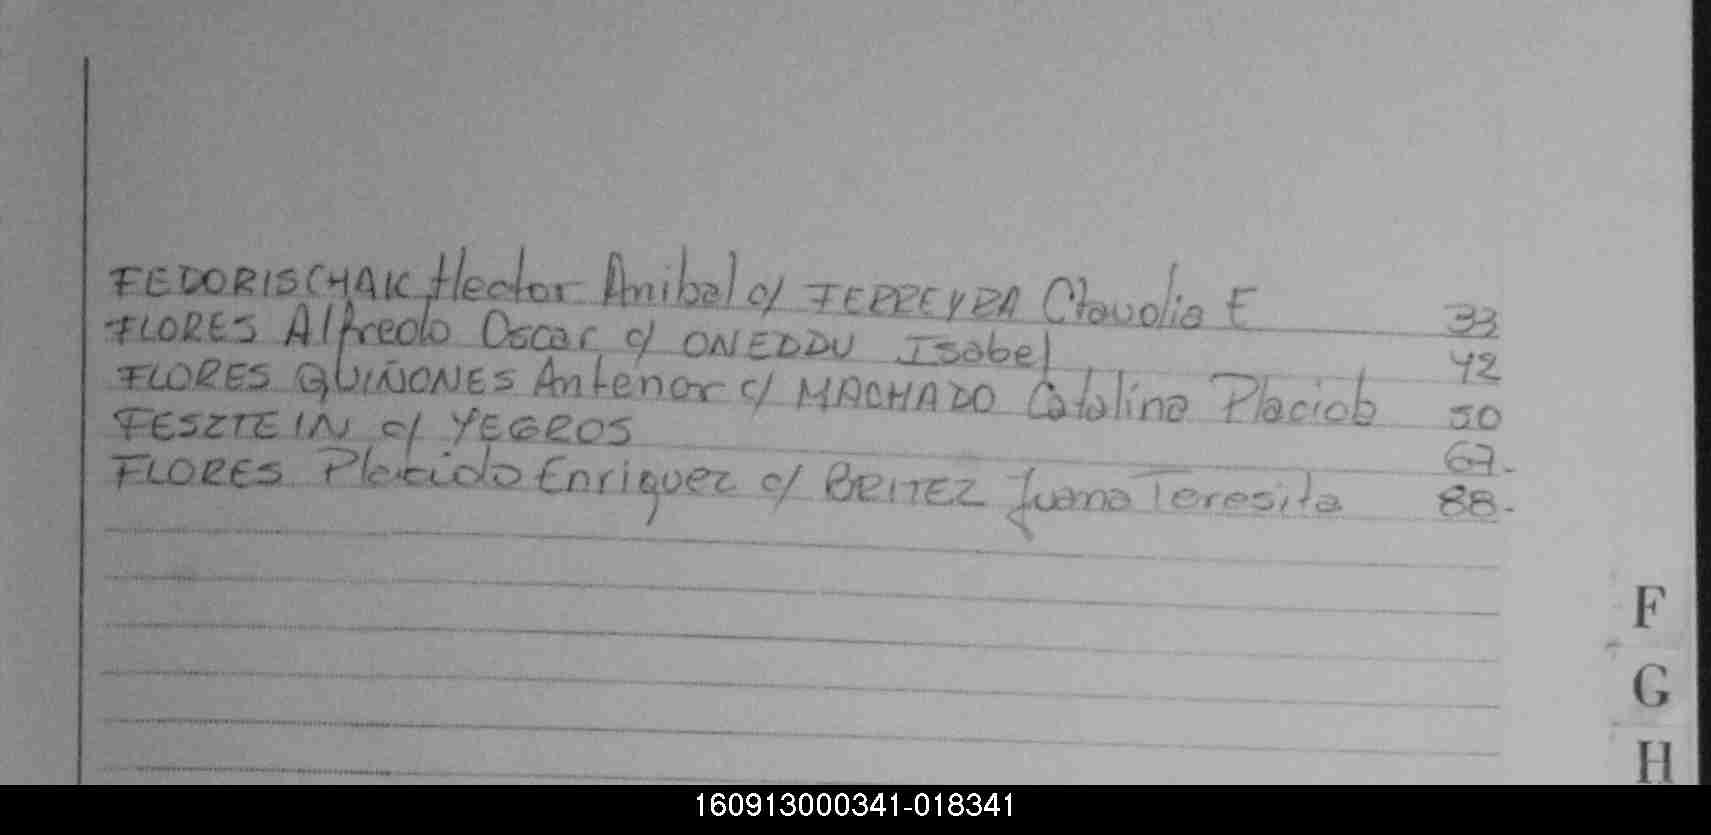 FEDORISCHAK Hector Anibal c/ FERREYRA Claudia E 33
FLORES Alfredo Oscar c/ ONEDDU Isabel 42
FLORES QUIÑONES Antenor c/ MACHADO Catalina Placida 50
FESZTEIN c/ YEGROS 67.
FLORES Placido Enriquez c/ BRITEZ Juana Teresita 88.
F
G
H
160913000341-018341